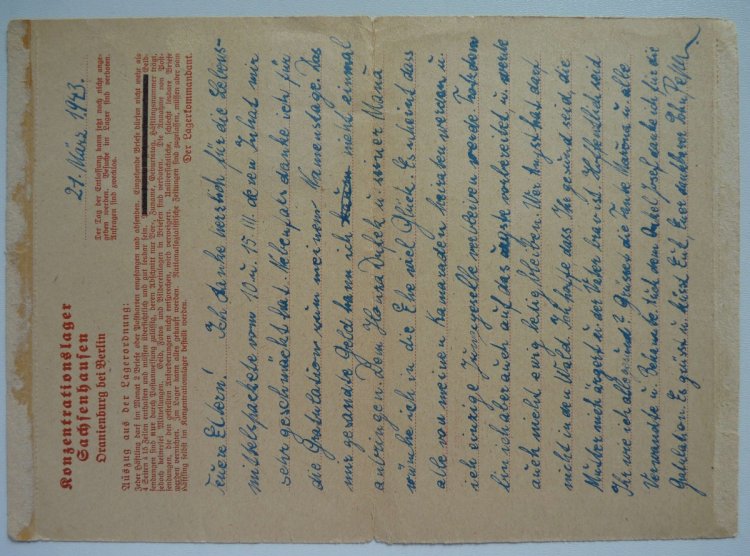 Konzentrationslager
Sachsenhausen
Oranienburg bei Berlin
21. März 1943.
Der Tag der Entlassung kann jetzt noch nicht ange-
geben werden. Besuche im Lager sind verboten.
Anfragen sind zwecklos.
Auszug aus der Lagerordnung:
Jeder Häftling darf im Monat 2 Briefe oder Postkarten empfangen und absenden. Eingehende Briefe dürfen nicht mehr als
4 Seiten à 15 Zeilen enthalten und müssen übersichtlich und gut lesbar sein. Geld-
sendungen sind nur durch Postanweisung zulässig, deren Abschnitt nur Vor-, Zuname, Geburtstag, Häftlingsnummer trägt,
jedoch keinerlei Mitteilungen. Geld, Fotos und Bildereinlagen in Briefen sind verboten. Die Annahme von Post-
sendungen, die den gestellten Anforderungen nicht entsprechen, wird verweigert. Unübersichtliche, schlecht lesbare Briefe
werden vernichtet. Im Lager kann alles gekauft werden. Nationalsozialistische Zeitungen sind zugelassen, müssen aber vom
Häftling selbst im Konzentrationslager bestellt werden.
Der Lagerkommandant.
Teuere Eltern! Ich danke herzlich für die Lebens-
mittelpackete vom 10 u. 15 III. deren Inhalt mir
sehr geschmäckt hat. Ebenfals danke ich für
die Gratulation zum meinem Namenstage. Das
mir gesandte Geld kann ich nicht einmal
anbringen. Dem Hanna u. seiner Mařa
wünsche ich in die Ehe viel Glück. Es scheint das
alle von meinen Kamaraden heiraten werden u.
ich einzige Junggeselle verbleiben werde. Trotzdem
bin ich aber auch auf das vorbereitet u. werde
auch nicht ewig ledig bleiben. Wer Angst hat darf
nicht in den Wald. Ich hoffe dass Ihr gesund seid, die
Mutter mich ärgert u. der Vater brav ist. Hoffendlich seid
Ihr wie ich alle gesund? Grüsset die Tante u. alle
Verwandte u. Bekannte. Auch dem Onkel Josef danke ich für die
Gratulation. Es grüsst u. küsst Euch, Euer dankbarer Sohn, Pepa.